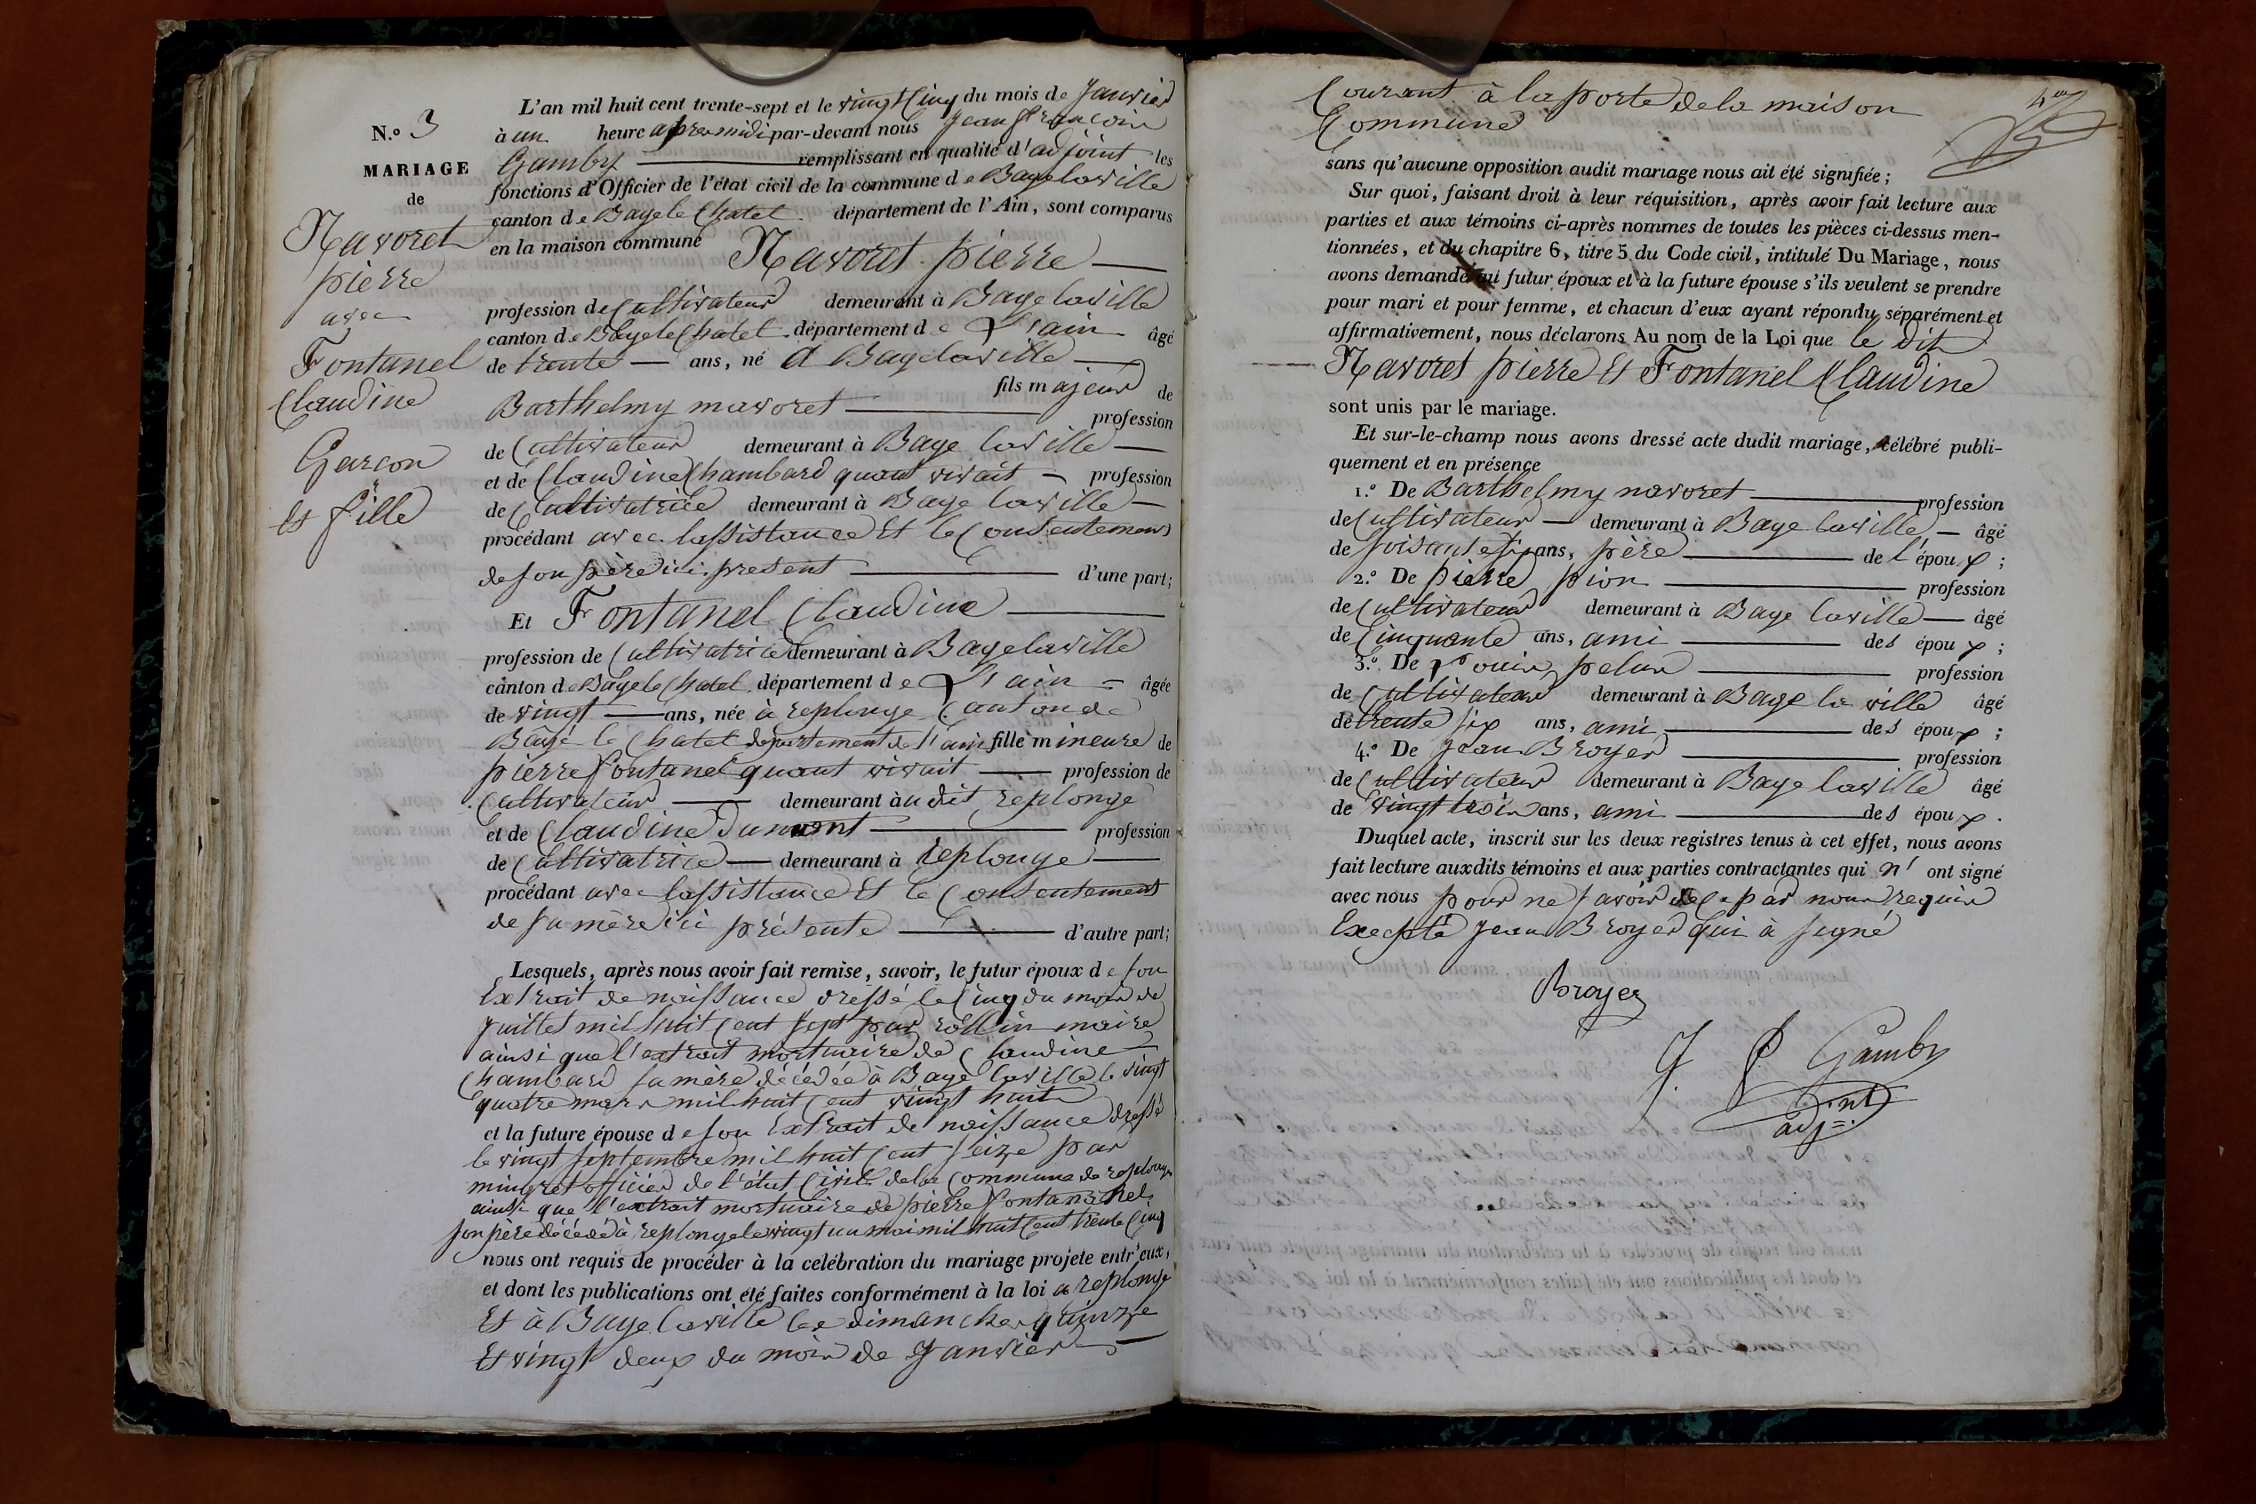 N.º 3
MARIAGE
de
Navoret
pierre
avec
Fontanel
Claudine
Garçon
et fille
L'an mil huit cent trente-sept et le vingt Cinq du mois de Janvier
à un heure apres midi par-devant nous jean françois
Gamby remplissant en qualité d'adjoint les
fonctions d'Officier de l'état civil de la commune de Bage laville
canton de Bage le Chatel département de l'Ain, sont comparus
en la maison commune Navoret pierre
profession de Cultivateur demeurant à Bage laville
canton de Bage le Chatel département de L'ain âgé
de trente ans, né a Bage laville
fils majeur de
Barthelmy navoret profession
de Cultivateur demeurant à Bage laville
et de Claudine Chambard quant vivait profession
de Cultivatrice demeurant à Bage laville
procédant avec lassistance Et le Consentement
de son père ici present d'une part;
Et Fontanel Claudine
profession de Cultivatrice demeurant à Bage laville
canton de Bage le Chatel département de L'ain âgée
de vingt ans, née à replonge Canton de
Bagé le Chatel departement de l'ain fille mineure de
pierre fontanel quant vivait profession de
Cultivateur demeurant àudit replonge
et de Claudine Dumont profession
de Cultivatrice demeurant à replonge
procédant avec lassistance Et le Consentement
de sa mère ici présente d'autre part;
Lesquels, après nous avoir fait remise, savoir, le futur époux de son
Extrait de naissance dressé le Cinq du mois de
juillet mil huit Cent sept par rollin maire
ainsi que l'extrait mortuaire de Claudine
Chambard sa mère décédée à Bage laville le vingt
quatre mars mil huit Cent vingt huit
et la future épouse de son Extrait de naissance dressé
le vingt septembre mil huit Cent seize par
mingret officier de l'état Civil de la Commune de replonge
ainsi que l'extrait mortuaire de pierre fontanel
son père décédé à replonge le vingt un mai mil huit Cent trente Cinq
nous ont requis de procéder à la celébration du mariage projete entr'eux,
et dont les publications ont été faites conformément à la loi a replonge
Et à Bage laville les dimanches quinze
Et vingt deux du mois de Janvier
Courant à la porte de la maison
Commune
sans qu'aucune opposition audit mariage nous ait été signifiée;
Sur quoi, faisant droit à leur réquisition, après avoir fait lecture aux
parties et aux témoins ci-après nommes de toutes les pièces ci-dessus men-
tionnées, et du chapitre 6, titre 5 du Code civil, intitulé Du Mariage, nous
avons demandé au futur époux et à la future épouse s'ils veulent se prendre
pour mari et pour femme, et chacun d'eux ayant répondu séparément et
affirmativement, nous déclarons Au nom de la Loi que le dit
Navoret pierre Et Fontanel Claudine
sont unis par le mariage.
Et sur-le-champ nous avons dressé acte dudit mariage, célébré publi-
quement et en présence
1.º De Barthelmy navoret profession
de Cultivateur demeurant à Bage laville âgé
de soisante six ans, père de l'époux;
2.º De pierre pion profession
de Cultivateur demeurant à Bage laville âgé
de Cinquante ans, ami des époux;
3.º De Louis pelus profession
de Cultivateur demeurant à Bage la ville âgé
de trente six ans, ami des époux;
4.º De Jean Broyer profession
de Cultivateur demeurant à Bage laville âgé
de vingt trois ans, ami des époux.
Duquel acte, inscrit sur les deux registres tenus à cet effet, nous avons
fait lecture auxdits témoins et aux parties contractantes qui n'ont signé
avec nous pour ne savoir de Ce par nous requis
Excepté jean Broyer qui à signé
Broyer
J. f Gamby
adj.nt